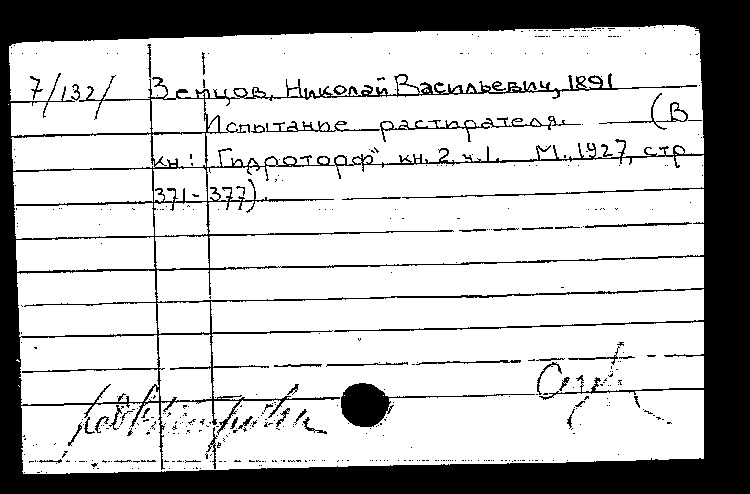 7/132/ Земцов, Николай Васильевич, 1891
Испытание растирателя. (В
кн.: "Гидроторф", кн. 2, ч. 1. М., 1927, стр
371-377).